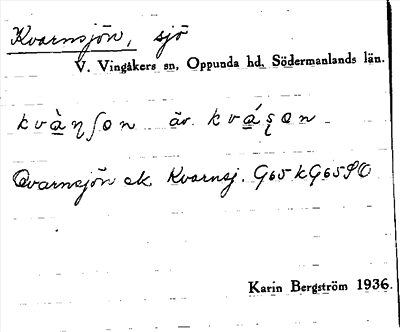 Kvarnsjön, sjö
V. Vingåkers sn, Oppunda hd, Södermanlands län.
kvàŋʃon äv. kváʂon
Qvarnsjön ek Kvarnsj. G65 kG65SO
Karin Bergström 1936.